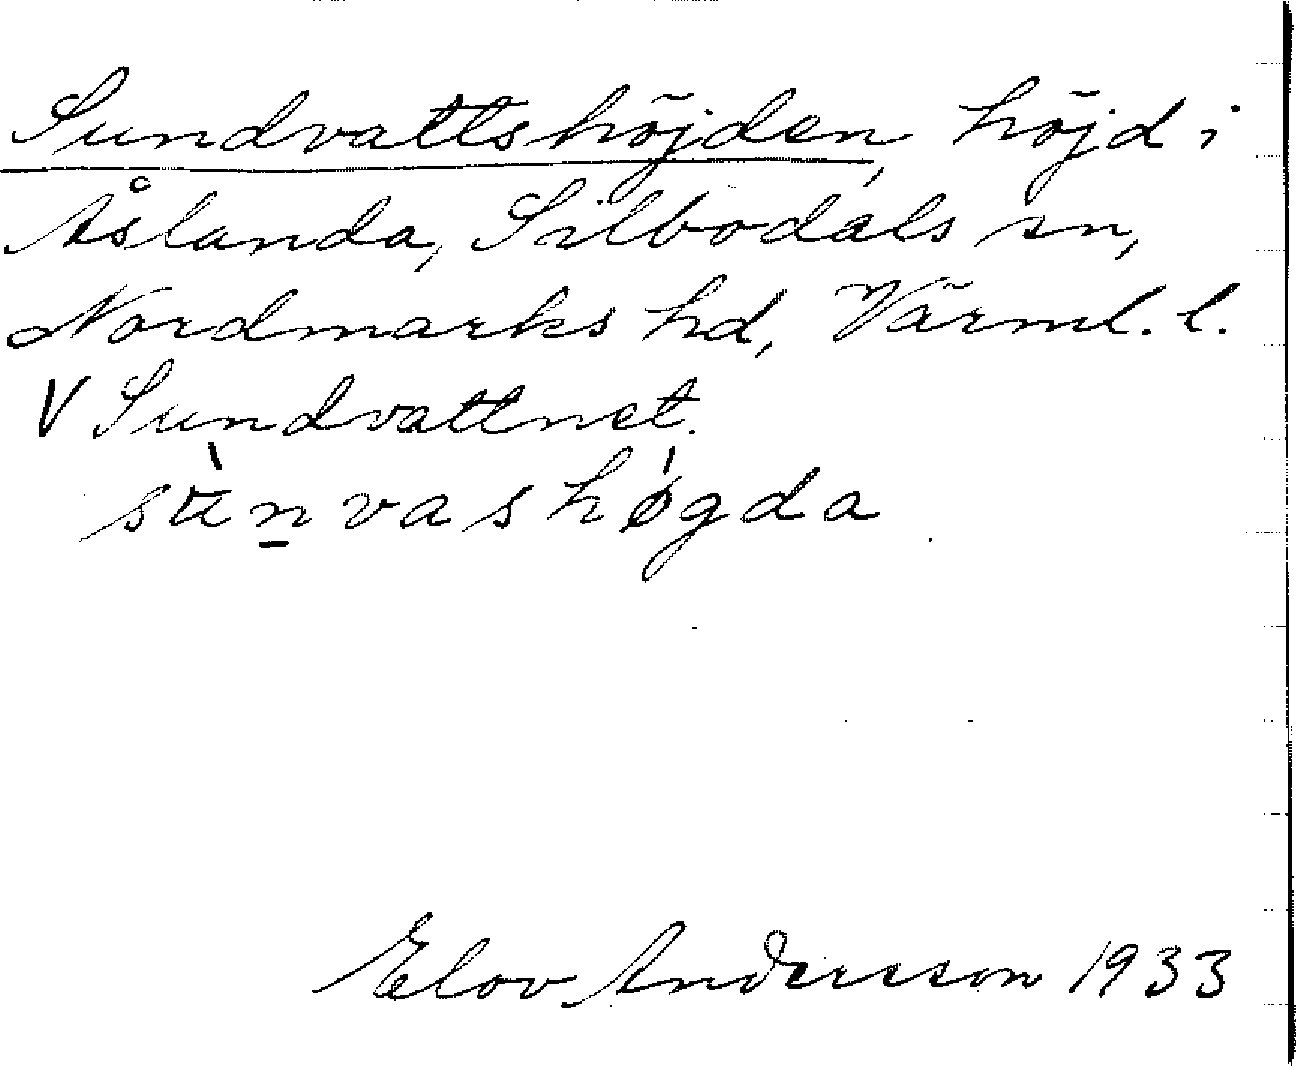 Sundvattshöjden, höjd i
Åslanda, Silbodals sn,
Nordmarks hd, Värml. l.
V Sundvattnet.
sùn̲vashǿgda
Elov Andersson 1933